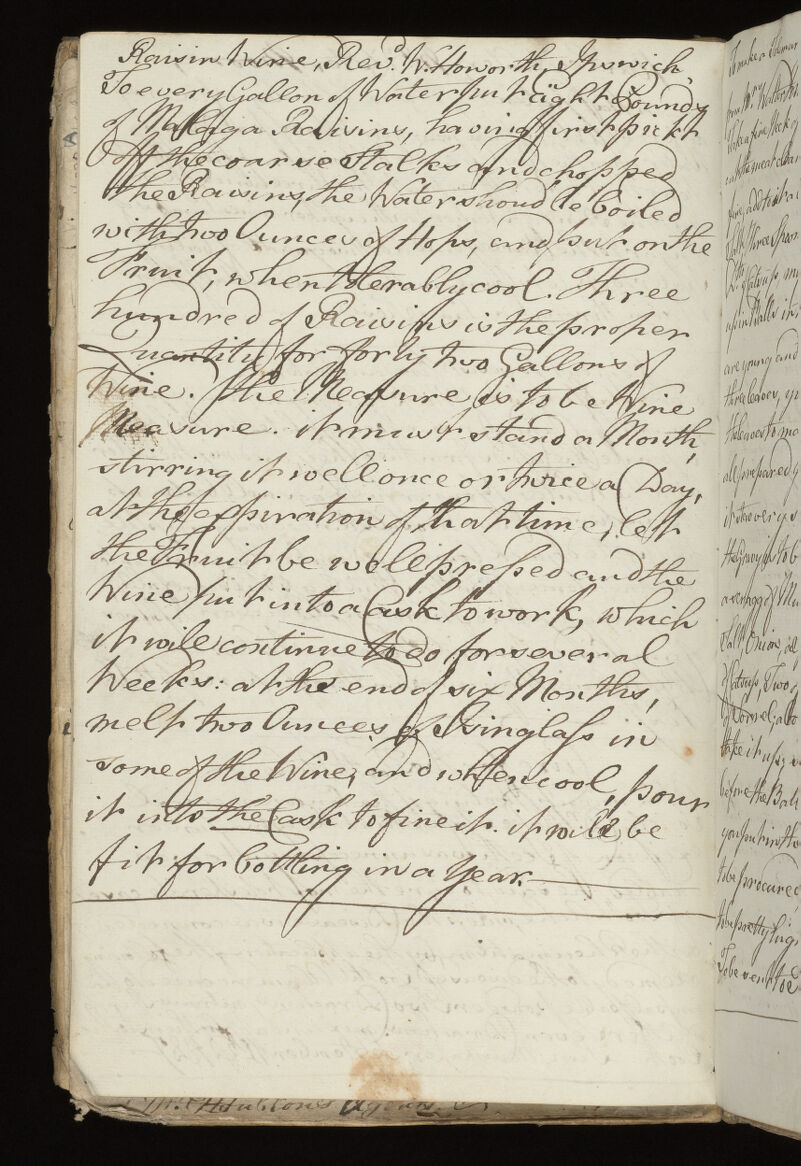 Raisin Wine, Revd. W. Howorth, Ipswich
To every Gallon of Water put eight Pounds
of Malaga Raisins, having first pickt
off the coarse Stalks and chopped
the Raisins, the Water shoud be boiled
with two Ounces of Hops, and put on the
Fruit, when tolerably cool. Three
hundred of Raisins is the proper
Quantity for forty two Gallons of
Wine. The Measure is to be Wine
Measure. it must stand a Month,
stirring it well once or twice a Day,
at the expiration of that time, let
the Fruit be well pressed and the
Wine put into a Cask to work, which
it will continue to do for several
Weeks: at the end of six Months,
melt two Ounces of Isinglass in
some of the Wine, and when cool, pour
it into the Cask to fine it. it will be
fit for bottling in a Year.
To make a
Take a fine
cut the meat
fire, add to it
Salt, three
up in Balls
are young and
three leaves,
the leaves to
all prepared
it over
the Gravy is to b
average of
Salt, Onion,
of Catsup, Two
take it up,
before the Ball
you put in the
to be procured
to be pretty
To be sent to